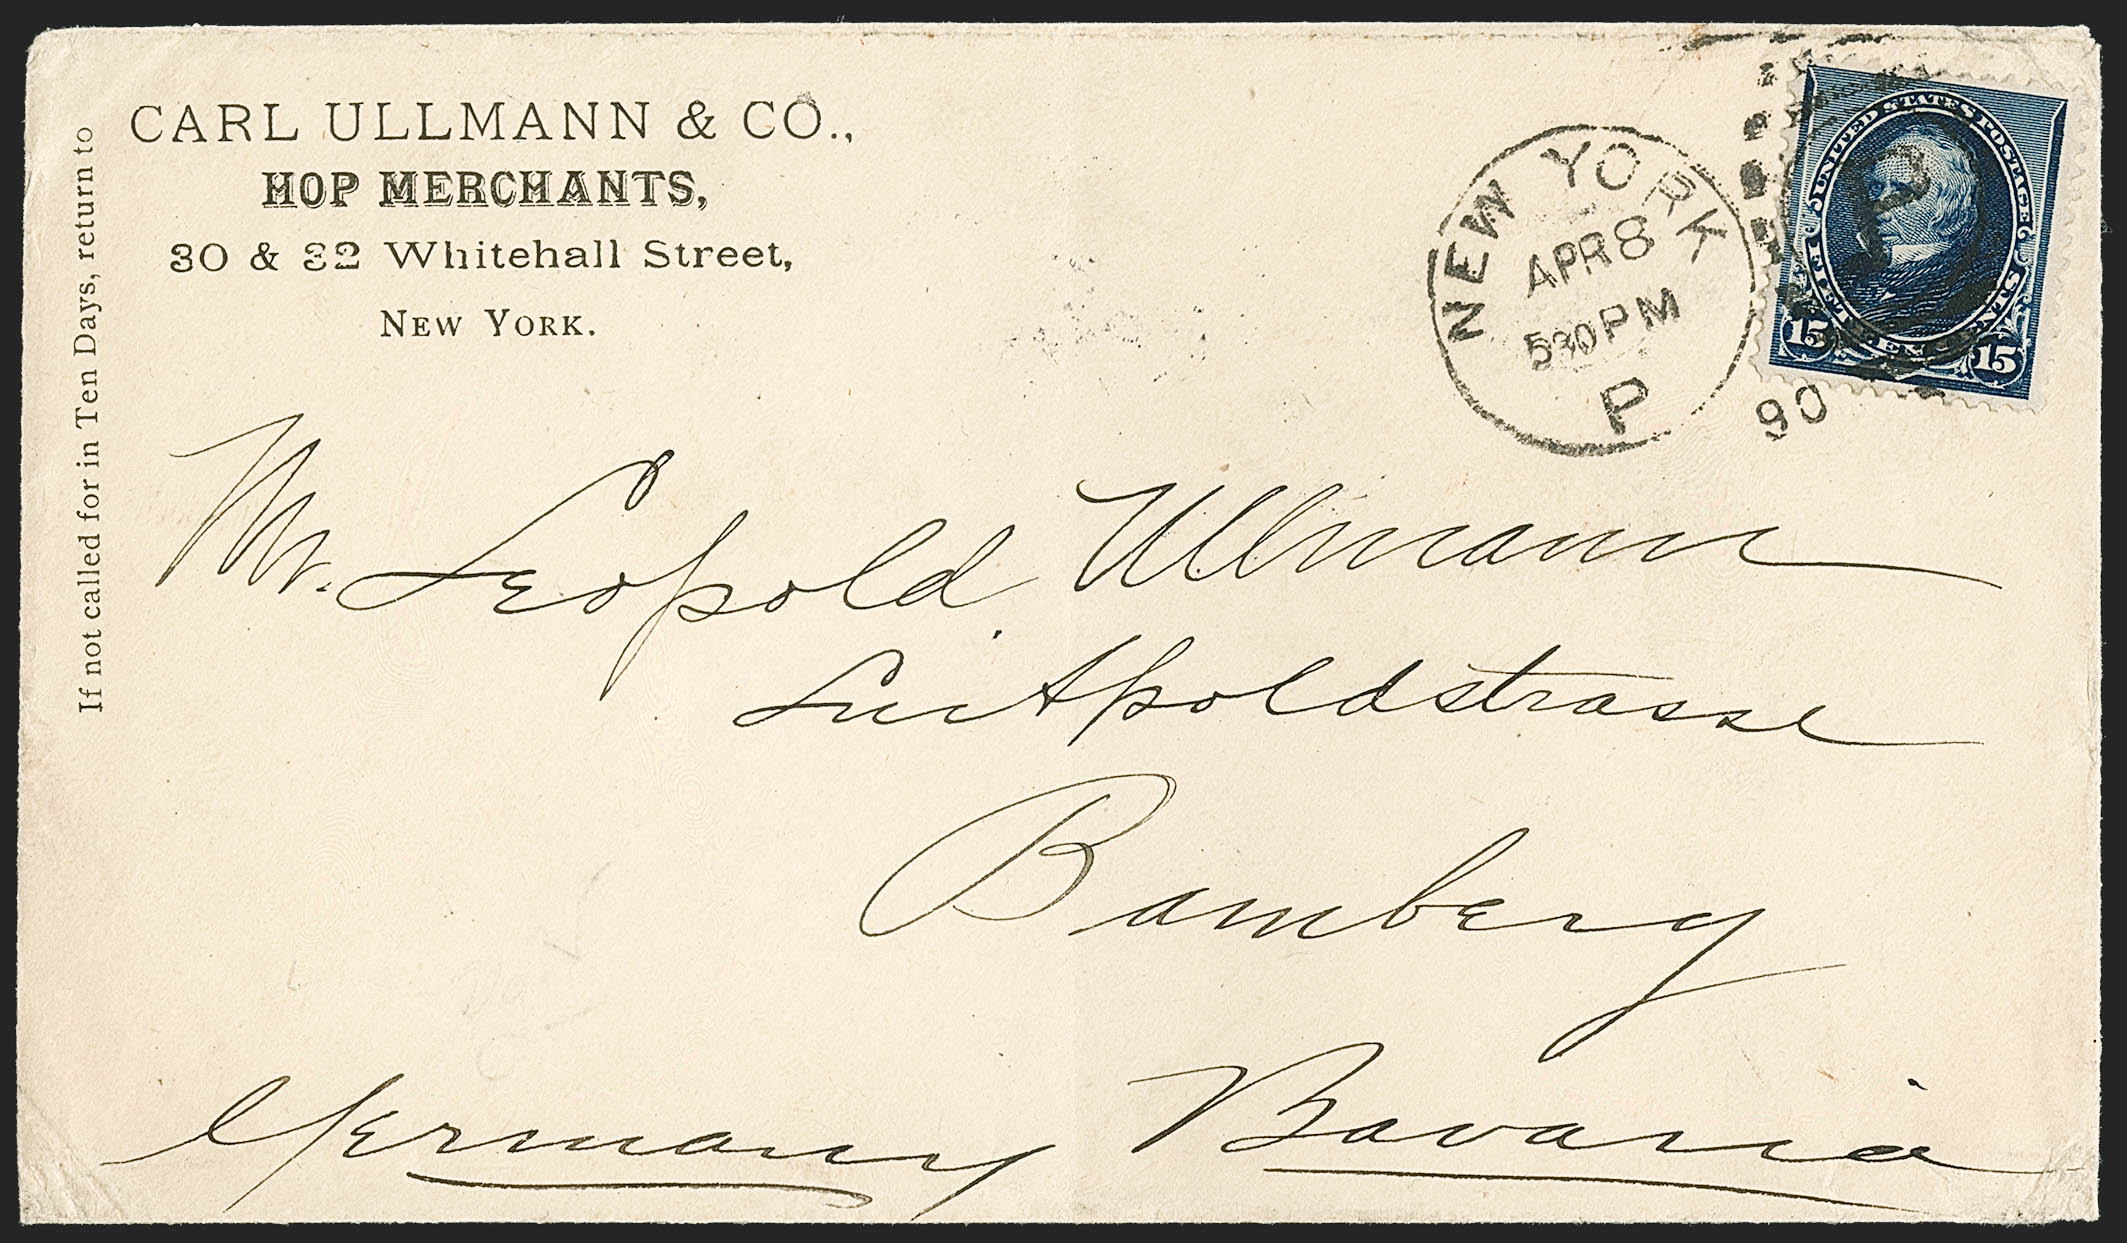 CARL ULLMANN & CO.,
HOP MERCHANTS,
30 & 32 Whitehall Street,
NEW YORK.
If not called for in Ten Days, return to
NEW YORK
APR 8
530PM
P
90
P
UNITED STATES POSTAGE
FIFTEEN CENTS
15 15
Mr. Leopold Ullmann
Luitpoldstrasse
Bamberg
Germany Bavaria